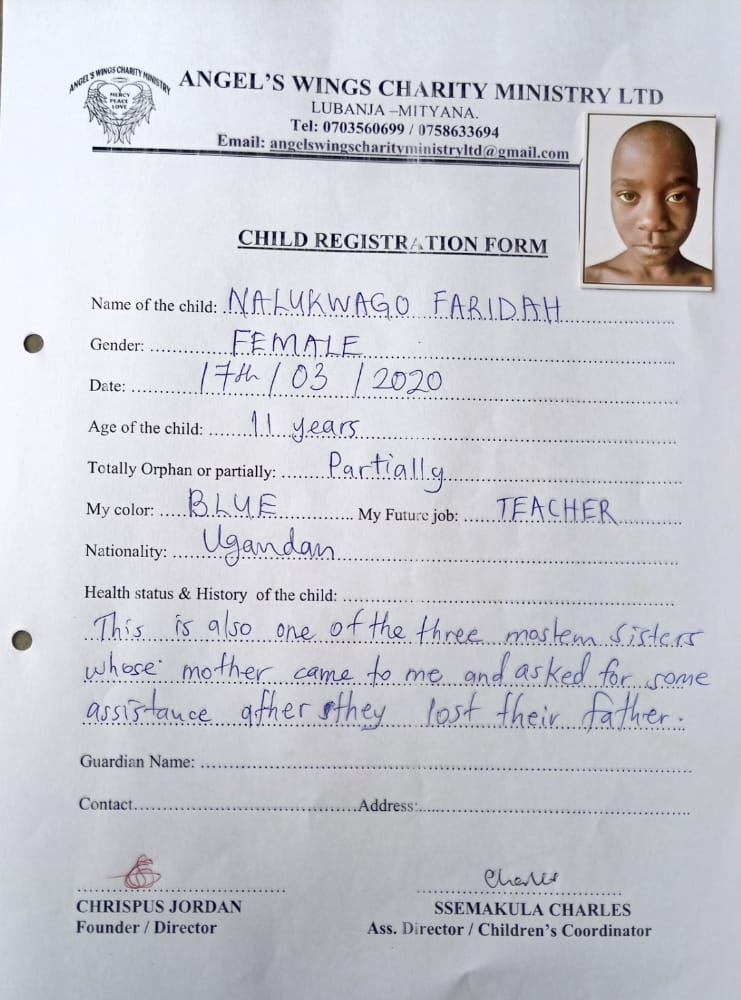 ANGEL'S WINGS CHARITY MINISTRY
MERCY
PEACE
LOVE
ANGEL'S WINGS CHARITY MINISTRY LTD
LUBANJA –MITYANA.
Tel: 0703560699 / 0758633694
Email: angelswingscharityministryltd@gmail.com
CHILD REGISTRATION FORM
Name of the child: NALUKWAGO FARIDAH
Gender: FEMALE
Date: 17th / 03 / 2020
Age of the child: 11 years
Totally Orphan or partially: Partially
My color: BLUE My Future job: TEACHER
Nationality: Ugandan
Health status & History of the child:
This is also one of the three moslem sisters
whose mother came to me and asked for some
assistance after they lost their father.
Guardian Name:
Contact Address:
Charles
CHRISPUS JORDAN SSEMAKULA CHARLES
Founder / Director Ass. Director / Children's Coordinator